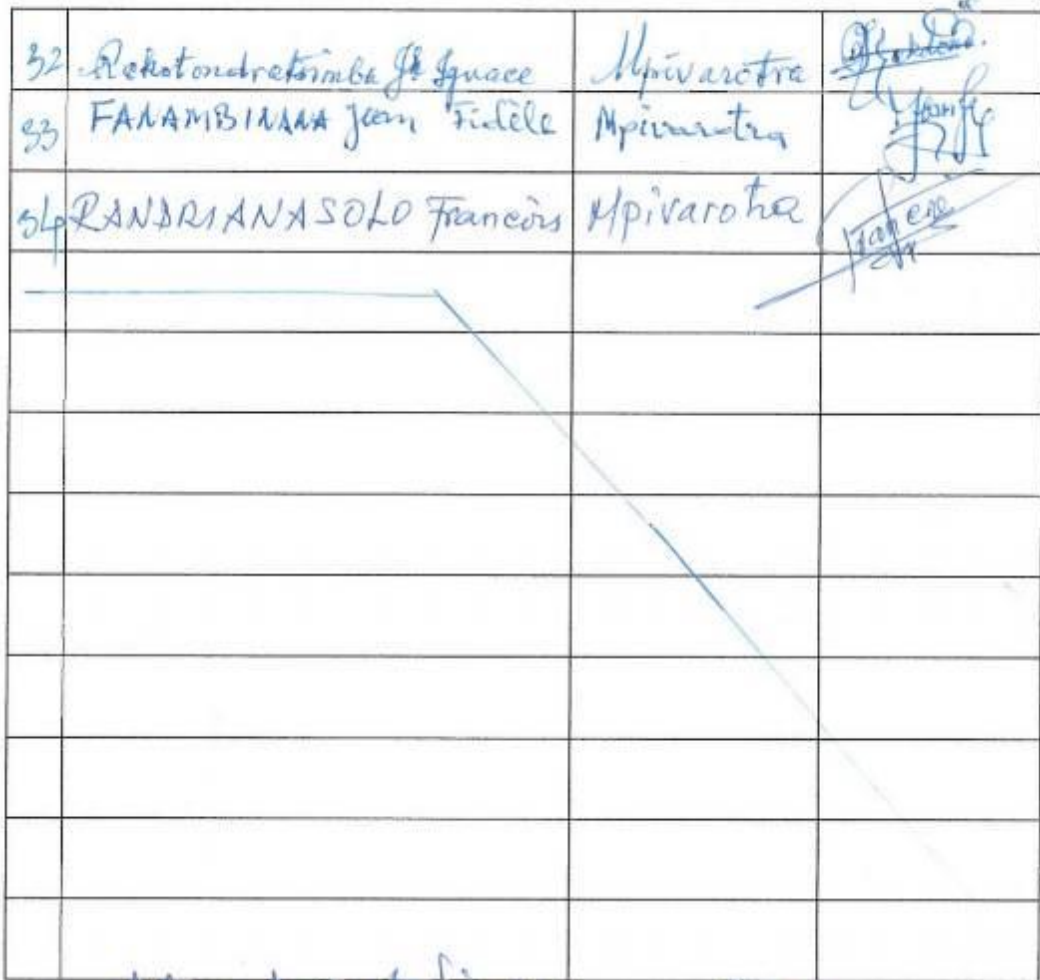 32 Rakotondratsimba Jn Ignace Mpivarotra
33 FANAMBINANA Jean Fidèle Mpivarotra
34 RANDRIANASOLO Francois Mpivarotra